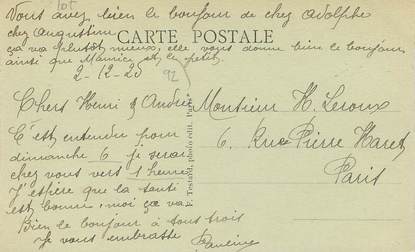 Vous avez bien le bonjour de chez Adolphe
chez Augustine
ça va plutôt mieux, elle vous donne bien le bonjour
ainsi que Maurice et le petit.
CARTE POSTALE
2-12-25
92
Chers Henri & André
C'est entendu pour
dimanche 6 je serai
chez vous vers 1 heure
J'espère que la santé
est bonne, moi ça va
Bien le bonjour à tous trois
Je vous embrasse
F. Testard, photo édit. Paris
Monsieur H. Leroux
6, Rue Pierre Haret
Paris